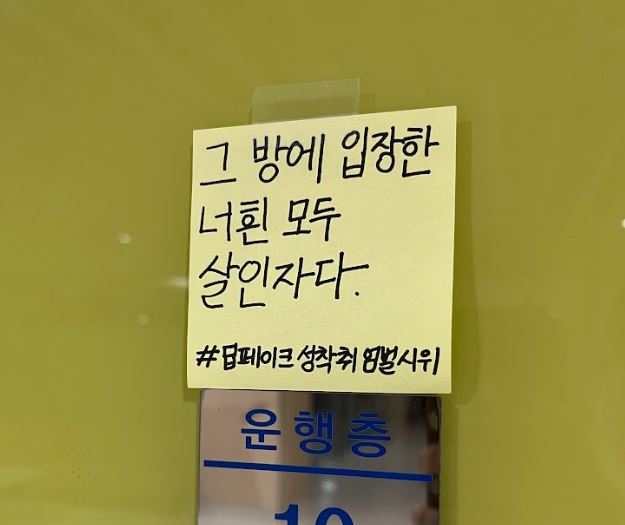 그 방에 입장한
너흰 모두
살인자다.
#딥페이크 성착취 엄벌시위
운행층
10